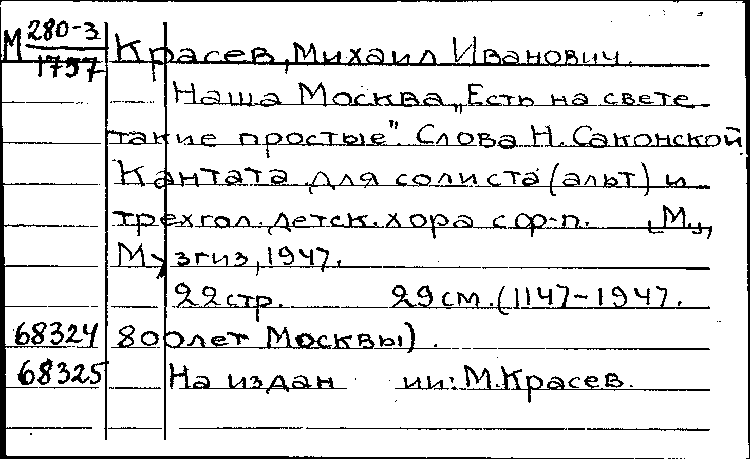 М 280-3 Красев, Михаил Иванович.
1757
Наша Москва „Есть на свете
такие простые". Слова Н. Саконской
Кантата для солиста (альт) и
трехгол. детск. хора с ф-п. [М.],
Музгиз, 1947.
22 стр. 29 см. (1147-1947.
68324 800 лет Москвы).
68325 На издан ии: М. Красев.